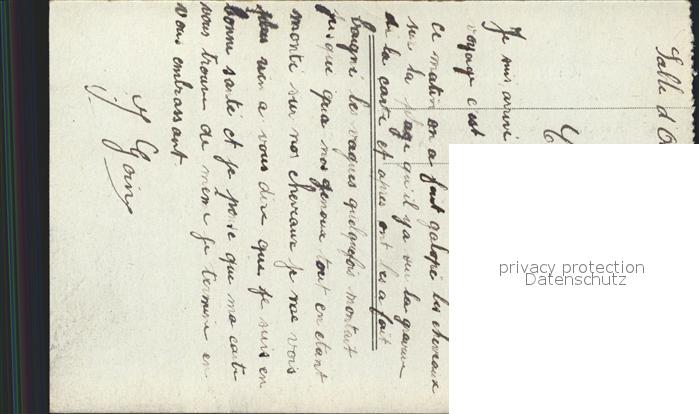 Salle d
Je suis arrivé
voyage c'est
ce matin on a fait galopé les chevaux
sur la plage qu'il y a sur la gravure
de la carte et apres ont les a fait
baigné les vagues quelquefois montait
jusque qua nos genoux tout en etant
monté sur nos chevaux je ne vois
plus rien a vous dire que je suis en
bonne santé et je pense que ma carte
vous trouve de meme je termine en
vous embrassant
J Goin
privacy protection
Datenschutz